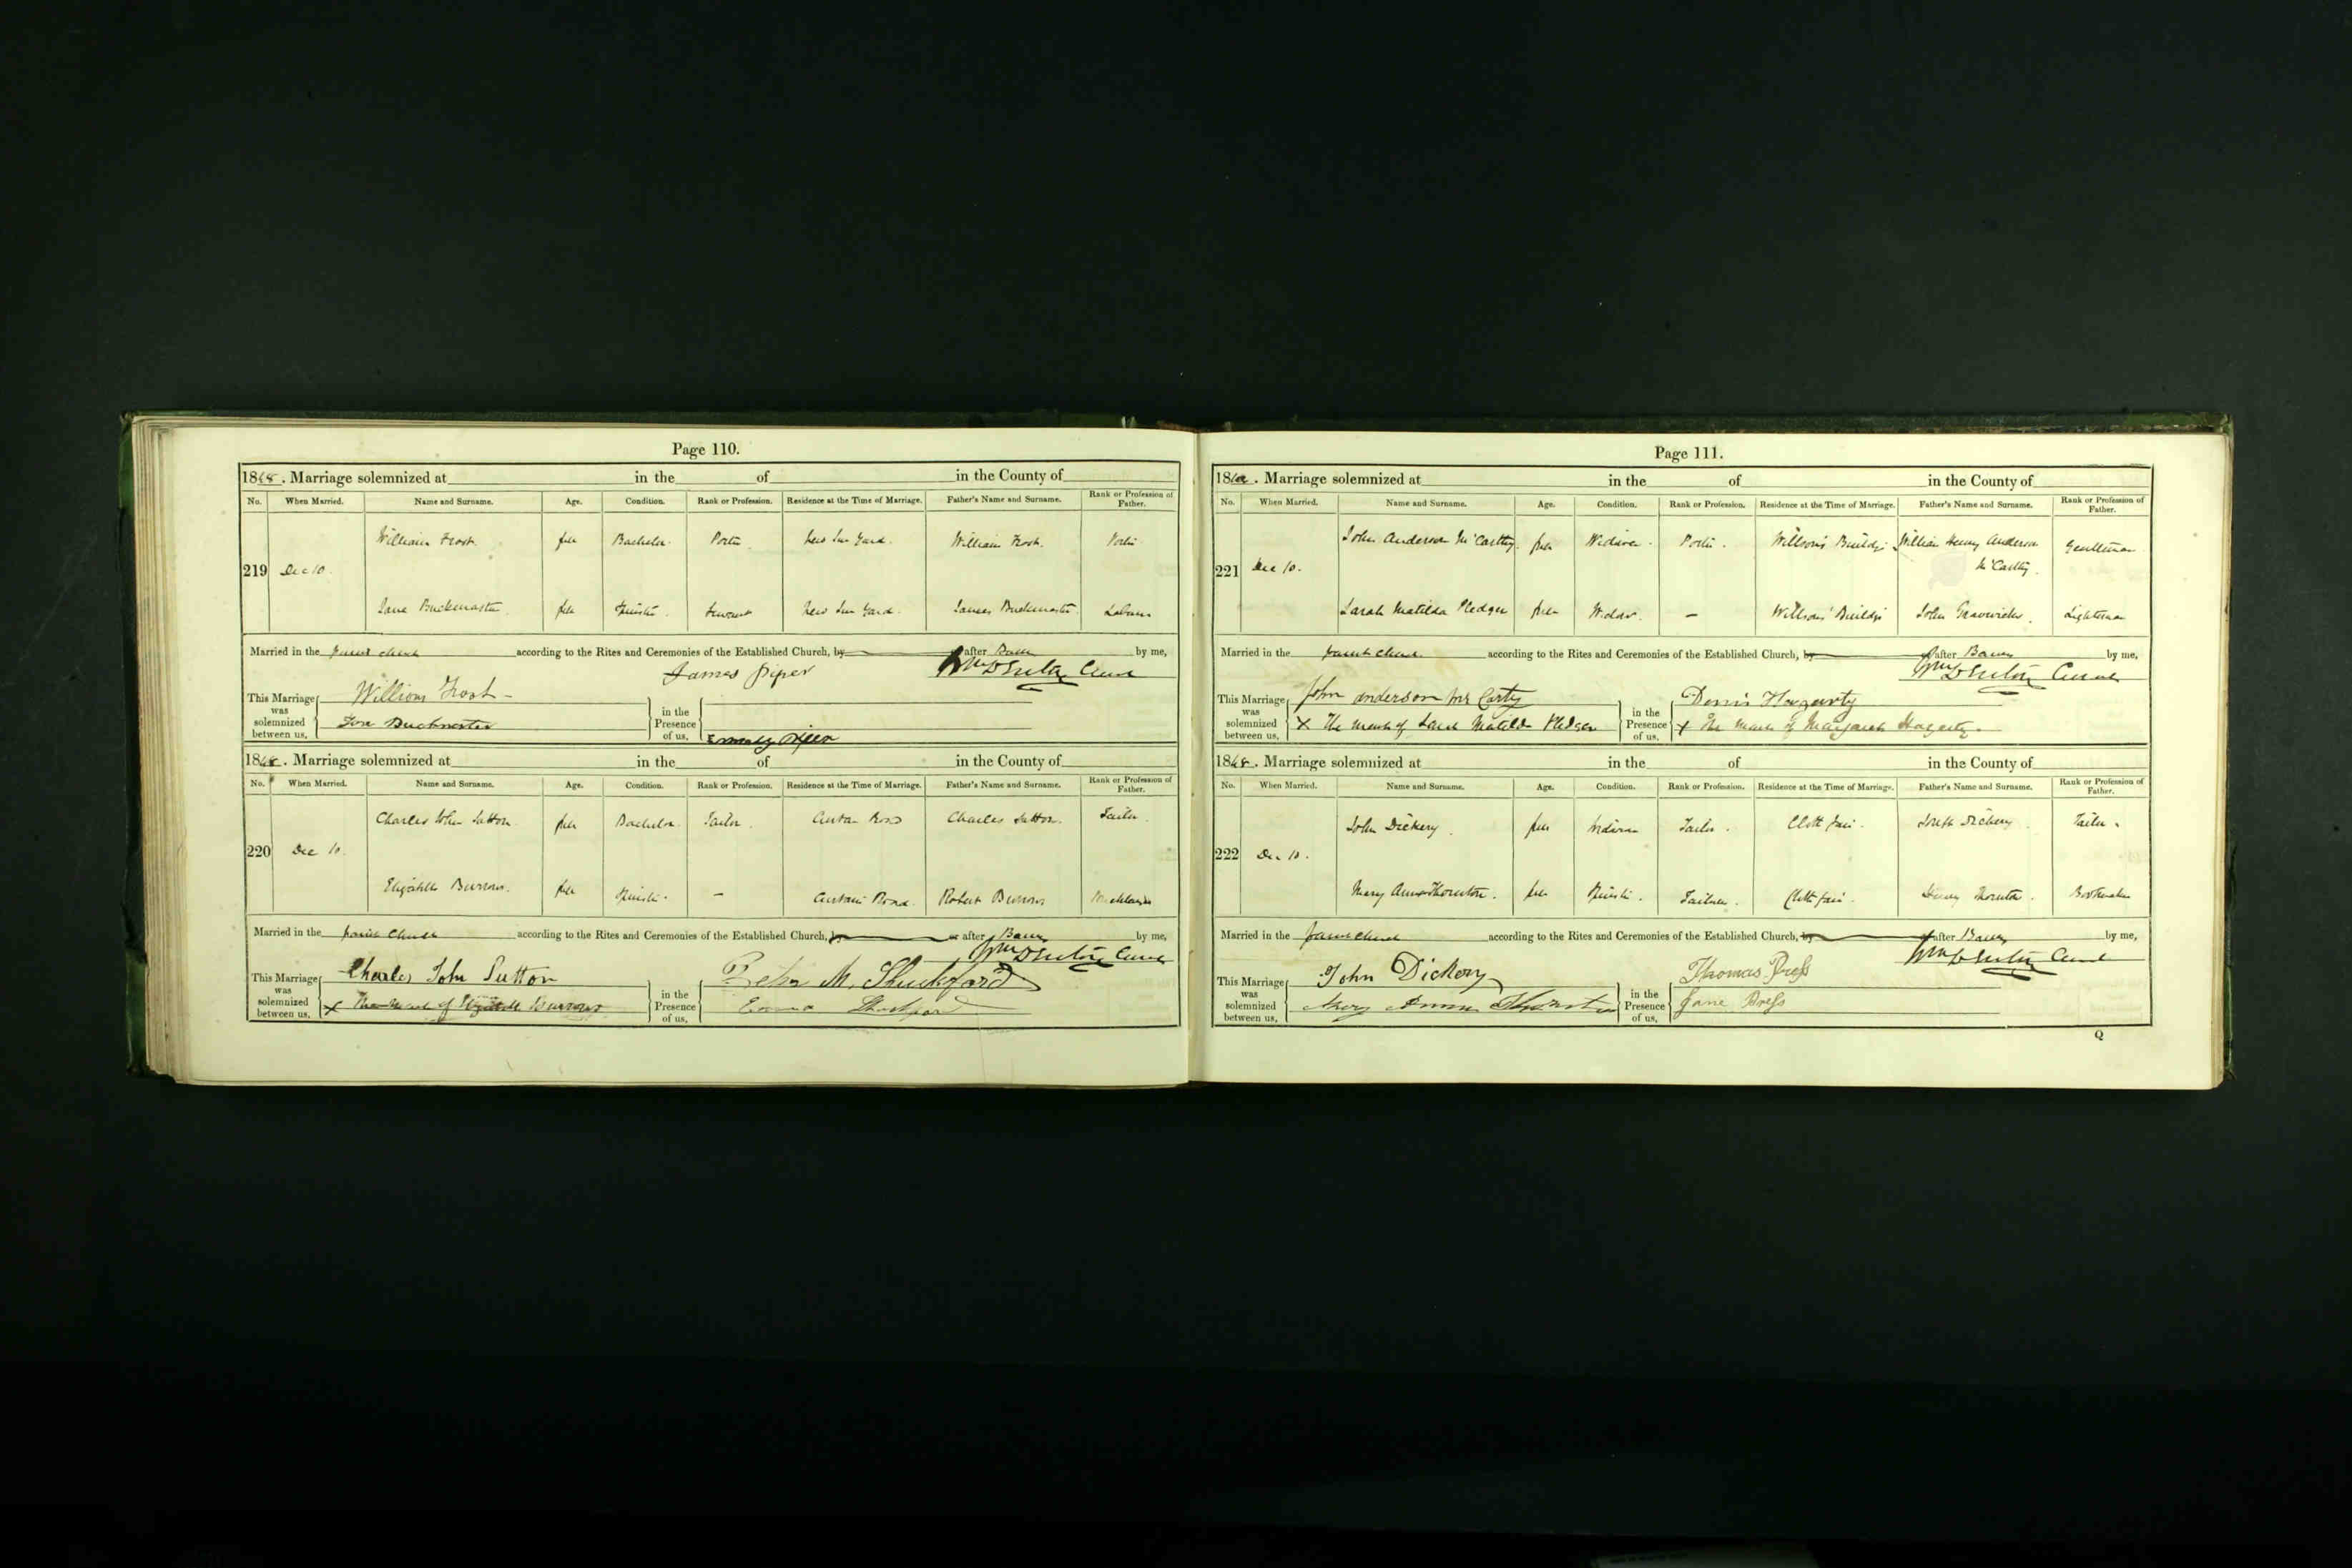 Page 110.
1868. Marriage solemnized at in the of in the County of
No. When Married. Name and Surname. Age. Condition. Rank or Profession. Residence at the Time of Marriage. Father's Name and Surname. Rank or Profession of Father.
William Frost. full Bachelor. Porter New Inn Yard. William Frost. Porter
219 Dec 10.
Jane Buckmaster full Spinster. Servant New Inn Yard. James Buckmaster Labourer
Married in the parish church according to the Rites and Ceremonies of the Established Church, by after Banns by me,
James Piper Curate
This Marriage was solemnized between us, William Frost
Jane Buckmaster
in the Presence of us,
1868. Marriage solemnized at in the of in the County of
No. When Married. Name and Surname. Age. Condition. Rank or Profession. Residence at the Time of Marriage. Father's Name and Surname. Rank or Profession of Father.
Charles John Sutton full Bachelor Tailor. Charles Sutton. Tailor.
220 Dec 10.
Elizabeth Burrows. full Spinster. – Robert Burrows
Married in the parish church according to the Rites and Ceremonies of the Established Church, by or after Banns by me,
Curate
This Marriage was solemnized between us, Charles John Sutton
x The mark of Elizabeth Burrows
in the Presence of us, M. Shuckford
Emma Shuckford
Page 111.
1868. Marriage solemnized at in the of in the County of
No. When Married. Name and Surname. Age. Condition. Rank or Profession. Residence at the Time of Marriage. Father's Name and Surname. Rank or Profession of Father.
John Anderson McCarthy. full Widower. Porter. Willson's Buildgs William Henry Anderson McCarthy. Gentleman
221 Dec 10.
Sarah Matilda Pledger full Widow. – Willsons' Buildgs John Lighterman
Married in the parish church according to the Rites and Ceremonies of the Established Church, by or after Banns by me,
Curate
This Marriage was solemnized between us, John anderson Mc Carty
x The mark of Sarah Matilda Pledger
in the Presence of us, Dennis Haggarty
x The mark of Margaret Hagarty.
1868. Marriage solemnized at in the of in the County of
No. When Married. Name and Surname. Age. Condition. Rank or Profession. Residence at the Time of Marriage. Father's Name and Surname. Rank or Profession of Father.
John Dickery. full Widower Tailor. Cloth Fair. Joseph Dickery. Tailor.
222 Dec 10.
Mary Anne Thornton. full Spinster. Tailoress. Cloth Fair. Henry Thornton. Bookmaker
Married in the parish church according to the Rites and Ceremonies of the Established Church, by or after Banns by me,
Curate
This Marriage was solemnized between us, John Dickery
Mary Anne Thornton
in the Presence of us, Thomas Press
Jane Press
Q